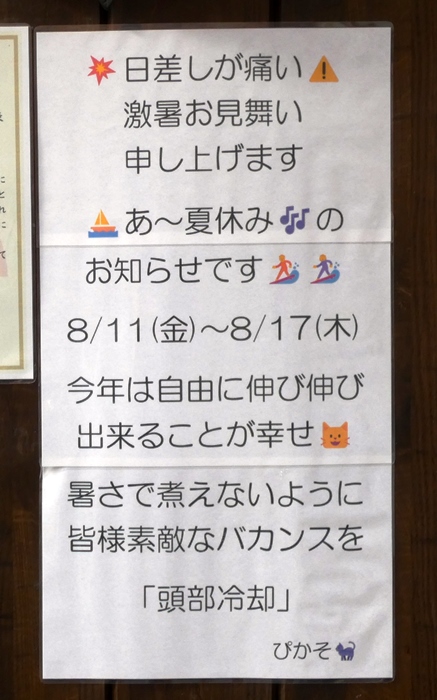 💥日差しが痛い⚠️
激暑お見舞い
申し上げます
⛵あ〜夏休み🎶の
お知らせです🏄🏄
8/11(金)〜8/17(木)
今年は自由に伸び伸び
出来ることが幸せ😺
暑さで煮えないように
皆様素敵なバカンスを
「頭部冷却」
ぴかそ🐈‍⬛